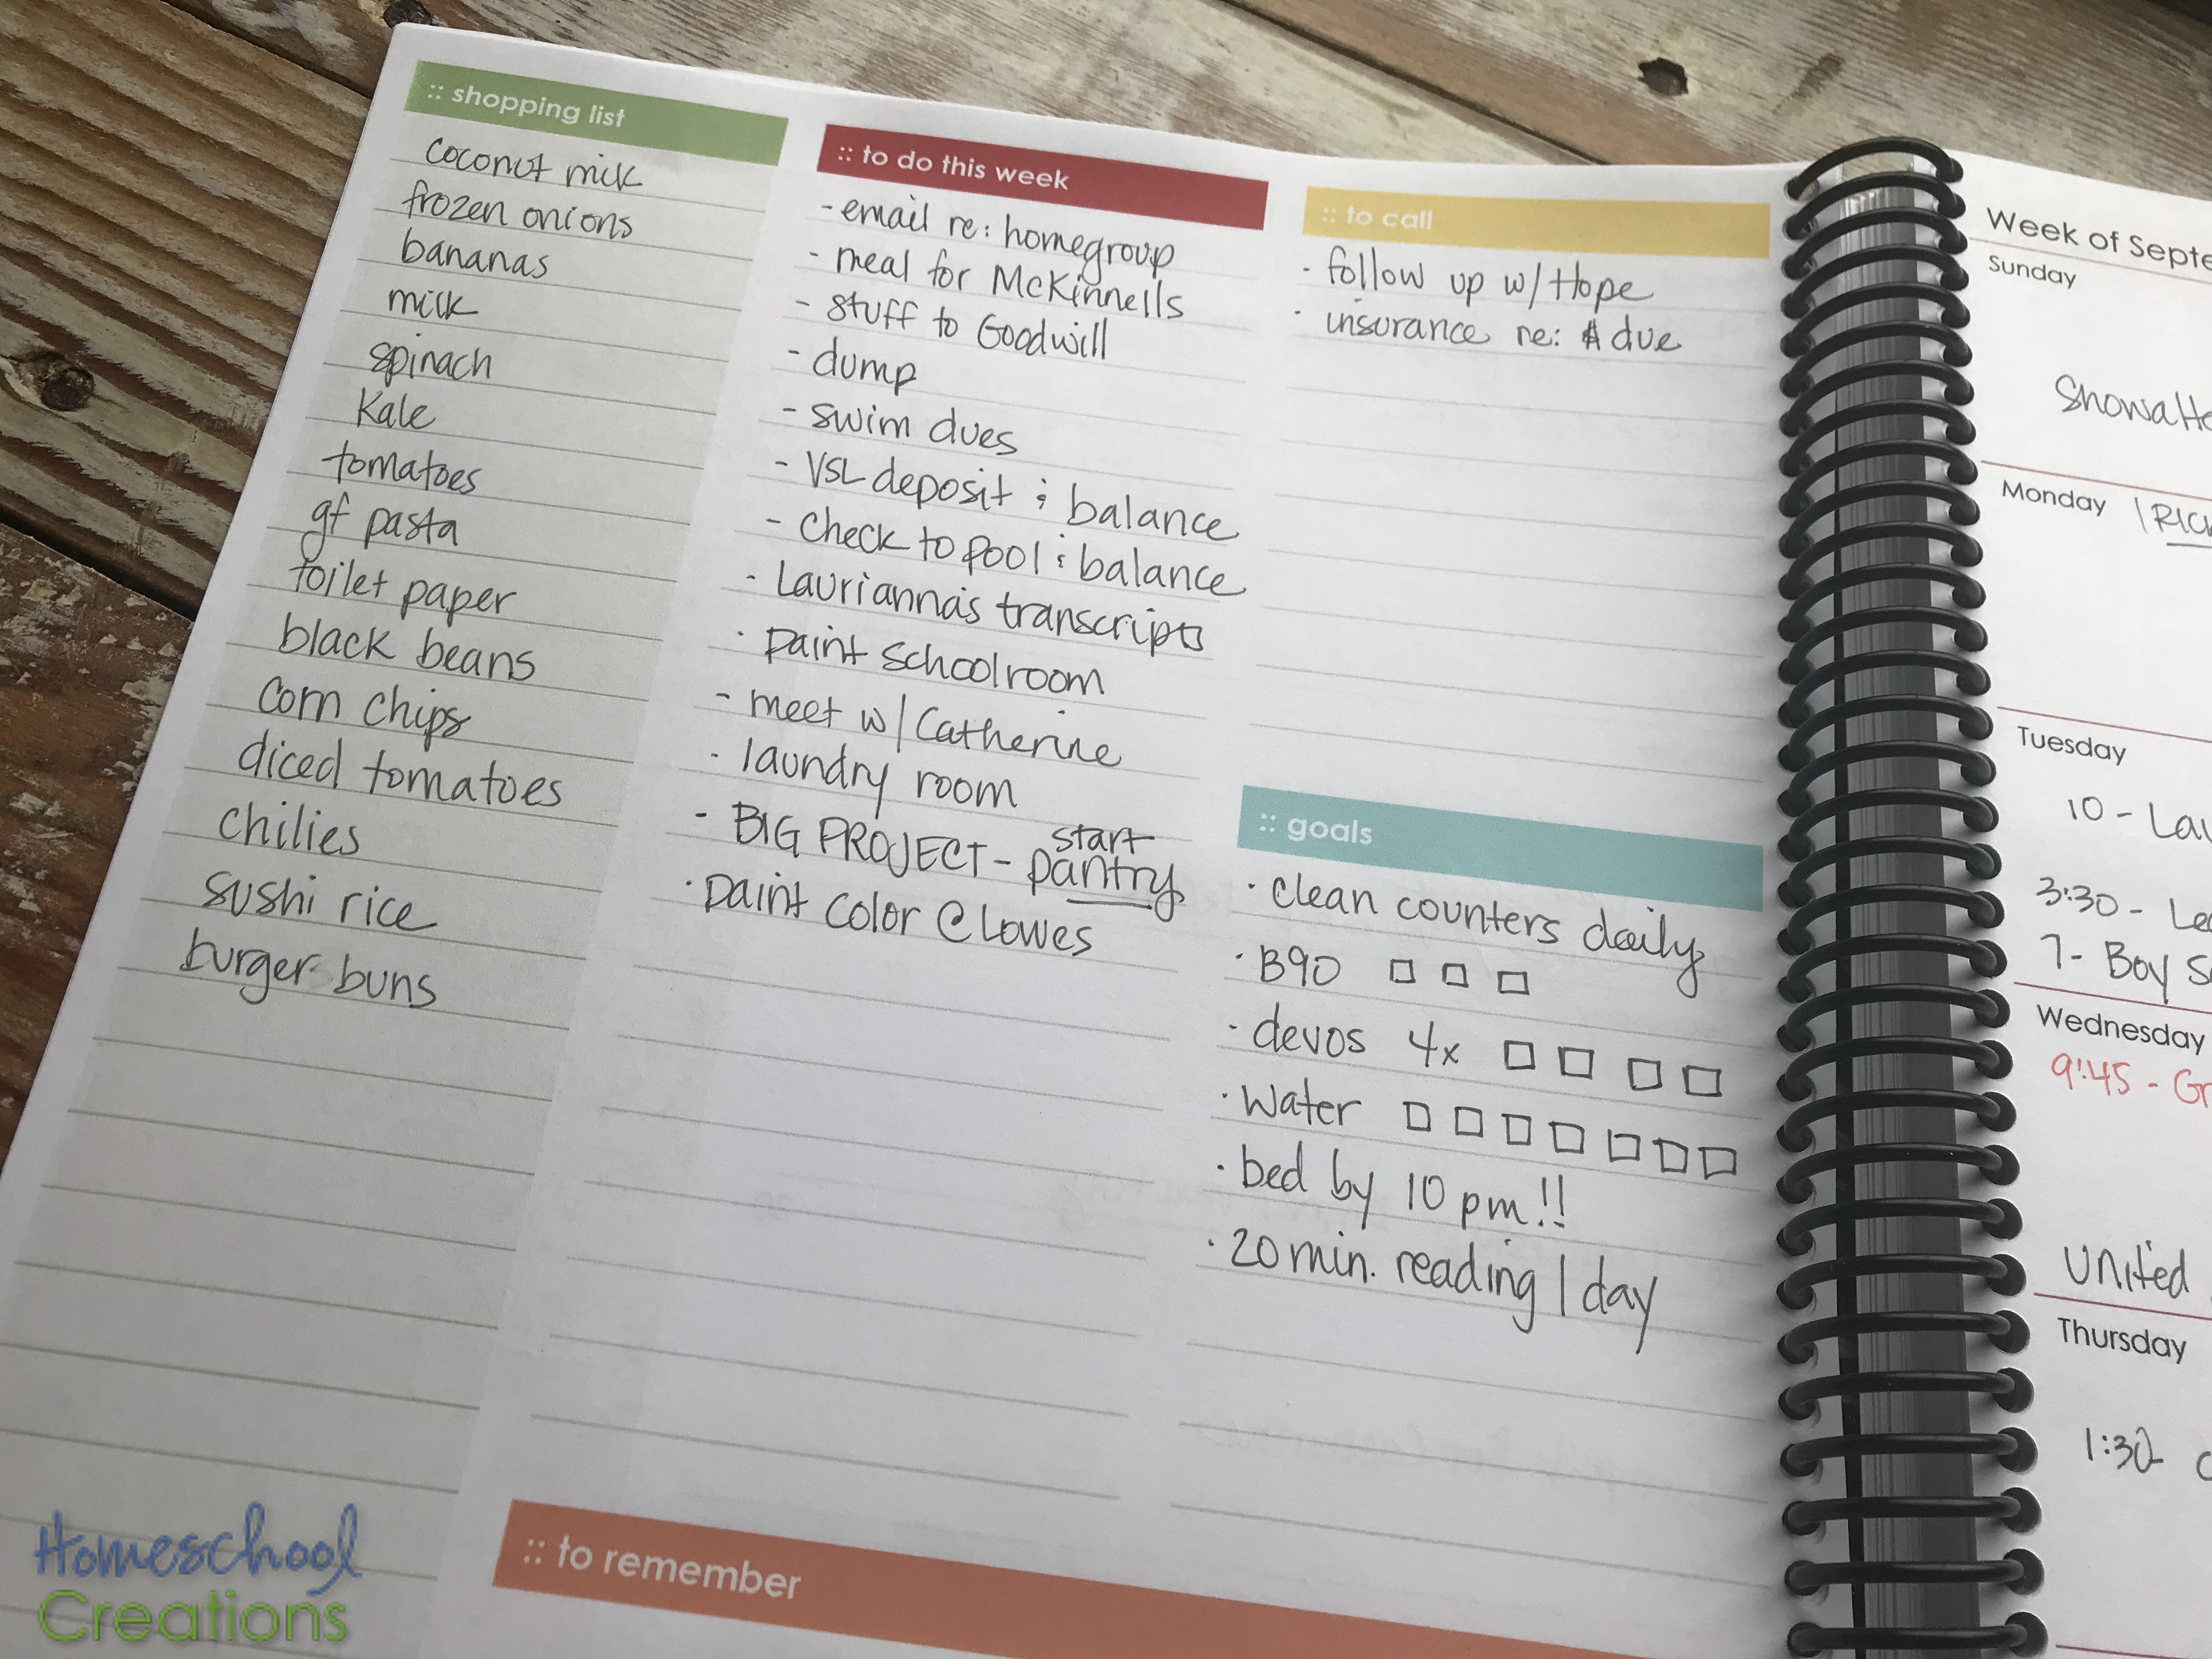 :: shopping list
coconut milk
frozen onions
bananas
milk
spinach
Kale
tomatoes
gf pasta
toilet paper
black beans
corn chips
diced tomatoes
chilies
sushi rice
burger buns
:: to do this week
- email re: homegroup
- meal for McKinnells
- stuff to Goodwill
- dump
- swim dues
- VSL deposit & balance
- check to pool & balance
- Laurianna's transcripts
· paint schoolroom
- meet w/ Catherine
· laundry room
- BIG PROJECT - start pantry
· paint color @ Lowes
:: to call
- follow up w/ Hope
· insurance re: $ due
:: goals
· clean counters daily
· B90 □ □ □
· devos 4x □ □ □ □
· water □ □ □ □ □ □ □
· bed by 10 pm!!
· 20 min. reading / day
:: to remember
Week of Septe
Sunday
Monday
Tuesday
10 - Lau
3:30 - Le
7 - Boy S
Wednesday
9:45 - Gr
United
Thursday
1:30 -
Homeschool
Creations